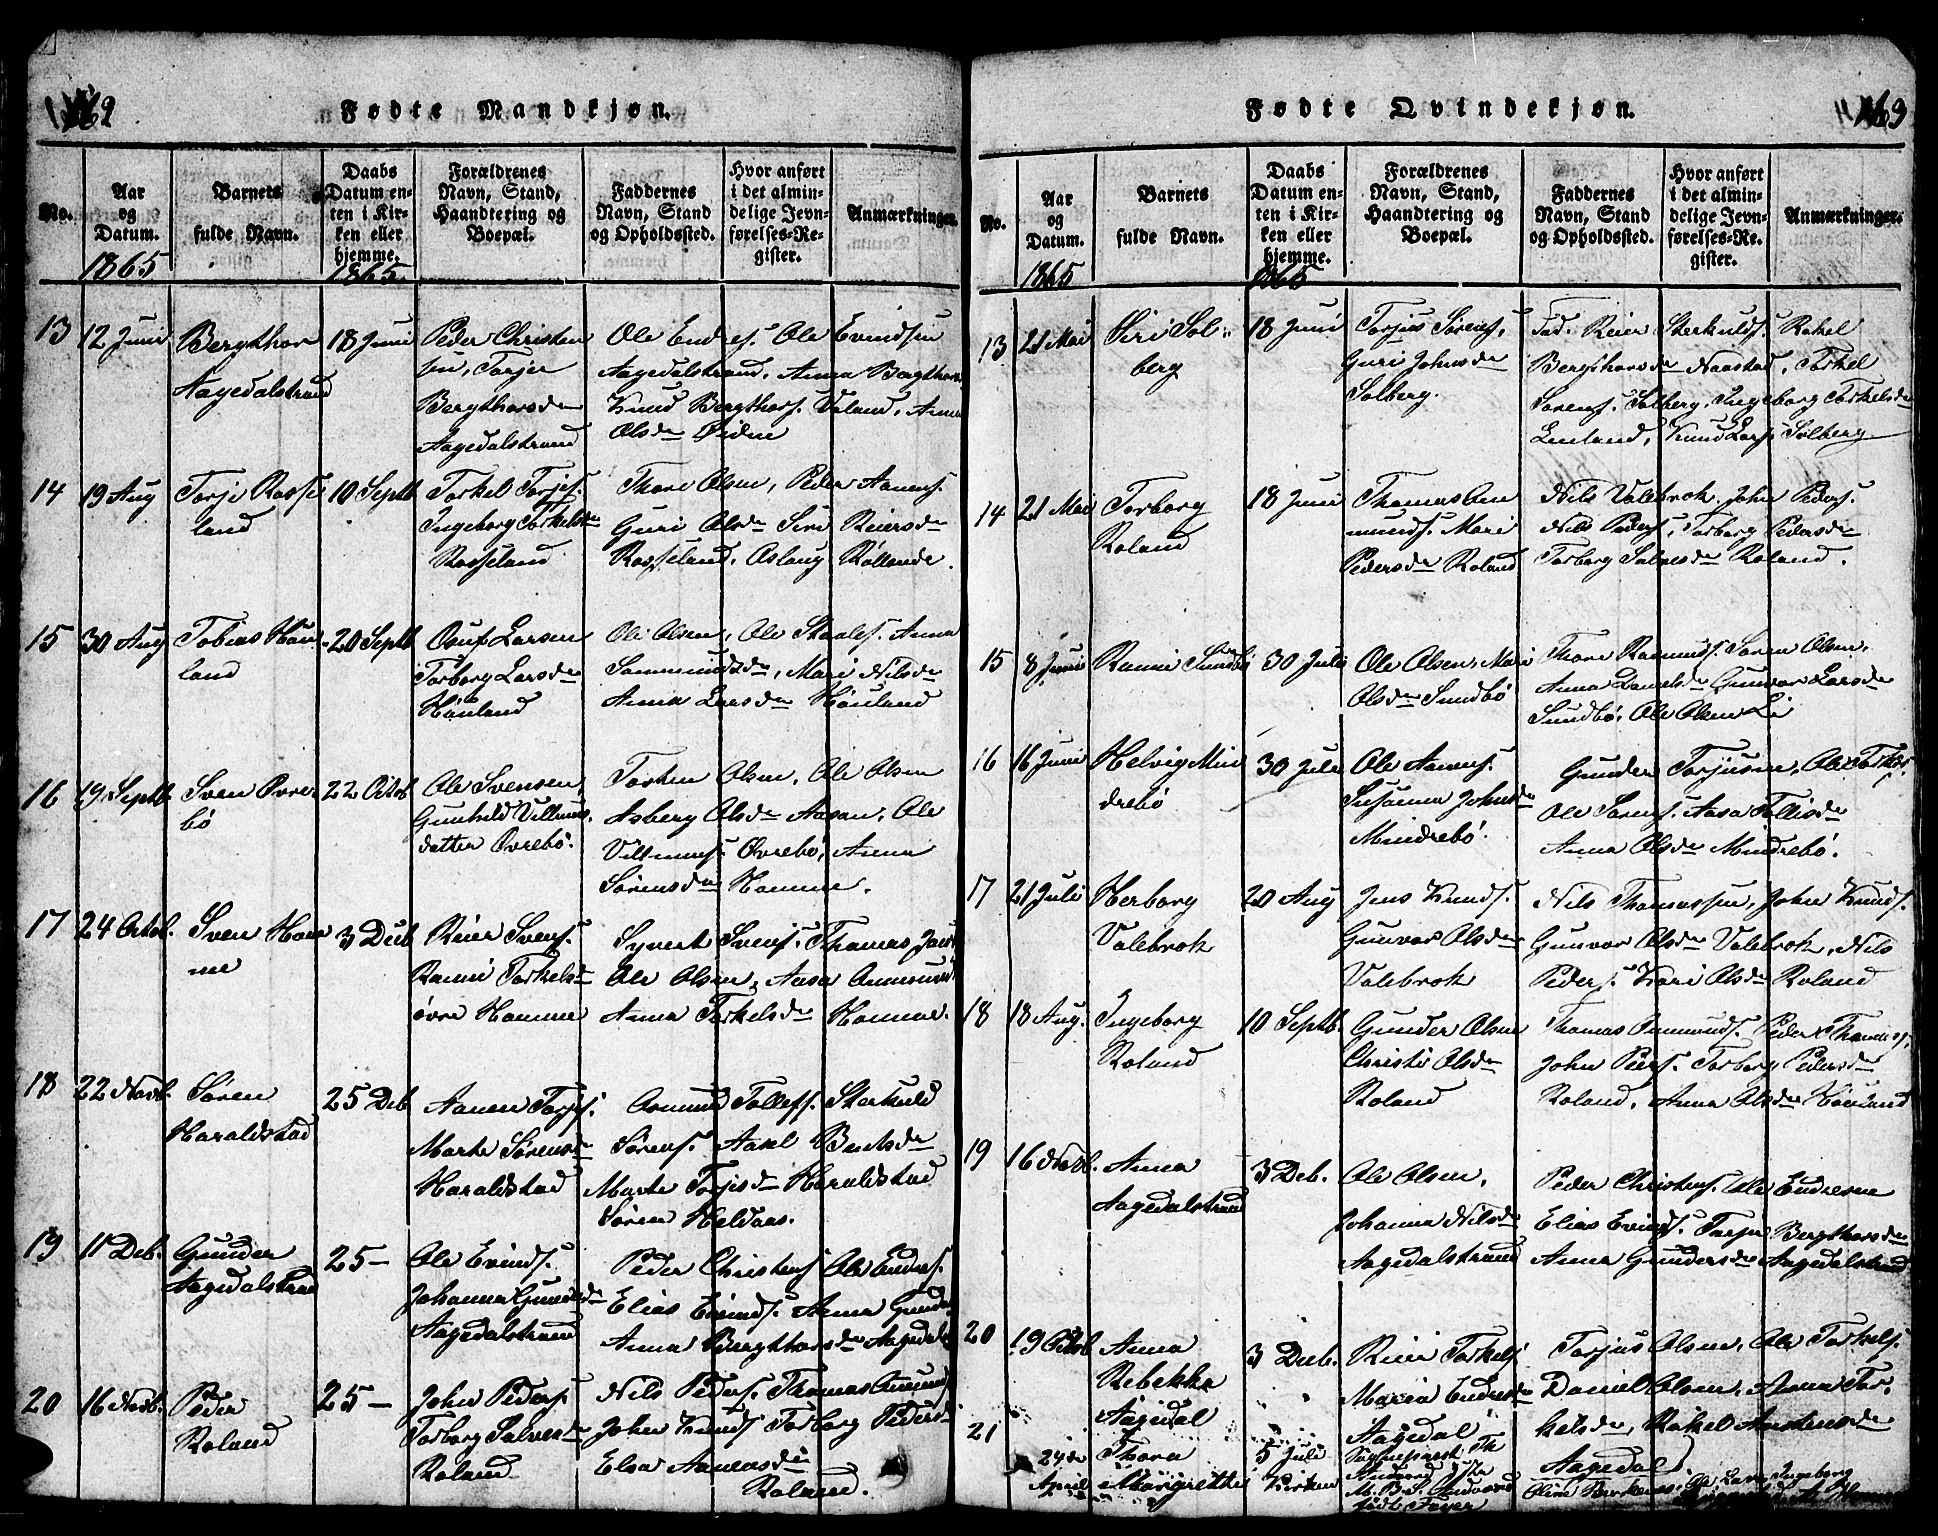 169
Fødte Mandkjøn.
No.
Aar
og
Datum.
1865
Barnets
fulde Navn.
Daabs
Datum en-
ten i Kir-
ken eller
hjemme.
1865
Forældrenes
Navn, Stand,
Haandtering og
Boepæl.
Faddernes
Navn, Stand
og Opholdssted.
Hvor anført
i det almin-
delige Jevn-
førelses-Re-
gister.
Anmærkninger.
13
12 Juni
Bergthor
Aagedalstrand
18 Juni
Peder Christen
sen, Torjer
Bergthorsdr
Aagedalstrand
Ole Endres. Ole Evindsen
Aagedalstrand, Anna Bergthors
Knud Bergthors. Voland, Anna
Olsdr Øiden
14
19 Aug
Torje Rosse
land
10 Septb
Torkel Torjes.
Ingeborg Torkelsdr
Rosseland
Thore Olsen, Peder Aanens.
Guri Olsdr Siri Reiersdr
Rosseland. Aslaug Røllende.
15
30 Aug
Tobias Høu
land
20 Septb
Osuf Larsen
Torborg Larsdr
Høuland
Ole Olsen, Ole Staales. Anna
Sammundsdr, Mari Nilsdr
Anna Larsdr Høuland
16
19 Septb.
Sven Øvre
bø
22 Octob
Ole Svensen,
Gunhild Villums
datter Øvrebø.
Torken Olsen, Ole Olsen
Asberg Olsdr Aasen, Ole
Villums. Øvrebø, Anna
Sørensdr Homme.
17
24 Octob.
Sven Hom
me
3 Deb
Reier Svens.
Ranni Torkelsdr
øvre Homme
Syvert Svens. Thomas
Ole Olsen, Aasa Anmunds
Anna Torkelsdr Homme.
18
22 Novb.
Søren
Haraldstad
25 Deb
Aanen Torjs.
Marte Sørensdr
Haraldstad
Asmund Tollefs. Sterkuld
Sørens. Axel Bentsdr
Marte Torjsdr Haraldstad
Søren Heldaas.
19
11 Deb.
Gunder
Aagedalstrand
25 —
Ole Evinds.
Johanna Gundersdr
Aagedalstrand
Peder Christens Ole Endres.
Elias Evinds. Anna Gunders
Anna Bergthorsdr Aagedals
20
16 Novb.
Peder
Roland
25 —
John Peders
Torborg Salvesdr
Roland
Nils Peders. Thomas Anmunds
John Knuds Torborg Pedersdr
Elsa Aanensdr
Roland.
169
Fødte Qvindekjøn.
No.
Aar
og
Datum.
1865
Barnets
fulde Navn.
Daabs
Datum en-
ten i Kir-
ken eller
hjemme.
1865
Forældrenes
Navn, Stand,
Haandtering og
Boepæl.
Faddernes
Navn, Stand
og Opholdssted.
Hvor anført
i det almin-
delige Jevn-
førelses-Re-
gister.
Anmærkninger.
13
21 Mai
Siri Sol-
berg
18 Juni
Torjus Sørens,
Guri Johnsdr
Solberg.
Fad. Reier Sterkulds. Rakel
Bergthorsdr Naastad, Torkel
Sørens. Solberg, Ingeborg Torkelsdr
Lenland, Knud Lars. Solberg
14
21 Mai
Torborg
Roland
18 Juni
Thomas An
munds. Mari
Pedersdr Roland
Nils Valebrok. John Peders.
Nils Peders, Torborg Pedersdr
Torborg Salvesdr Roland.
15
8 Juni
Ranni Sundbø
30 Juli
Ole Olsen, Mari
Olsdr Sundbø
Thore Rasmus. Søren Olsen,
Anna Danielsdr Gunvor Larsdr
Sundbø, Ole Olsen Li
16
16 Juni
Helvig Min
drebø
30 Juli
Ole Aanens.
Susanna Johnsdr
Mindrebø.
Gunder Torjusen, Ole Torkels.
Ole Sørens. Aasa Tollisdr
Anna Olsdr Mindrebø.
17
21 Juli
Herborg
Valebrok
20 Aug
Jens Knuds.
Gunvor Olsdr
Valebrok
Nils Thomassen, John Knuds.
Gunvor Olsdr Valebrok, Nils
Peders. Kari Olsdr Roland
18
18 Aug.
Ingeborg
Roland
10 Septb.
Gunder Olsen
Christi Olsdr
Roland
Thomas Anmunds. Peder Thomas.
John Peers. Torborg Pedersdr
Roland, Anna Olsdr Høuland
19
16 Novb.
Anna
Aagedalstrand
3 Deb.
Ole Olsen,
Johanna Nilsdr
Aagedalstrand
Peder Christens. Ole Endresen
Elias Evinds. Torjer Bergthorsdr
Anna Gundersdr Aagedalstrand
20
19 Octob
Anna
Rebekka
Aagedal
3 Deb.
Reier Torkels
Maria Endresdr
Aagedal
Torjus Olsen, Ole Torkels.
Daniel Olsen, Anna Tor-
kelsdr, Rakel Anstensdr
Aagedal
21
24de
April
Thora
Margrethe
5 Juli
Kirken
Sognepræst Th
M. B. S.
født Fayer
Oline Birkenes.
Ingeborg